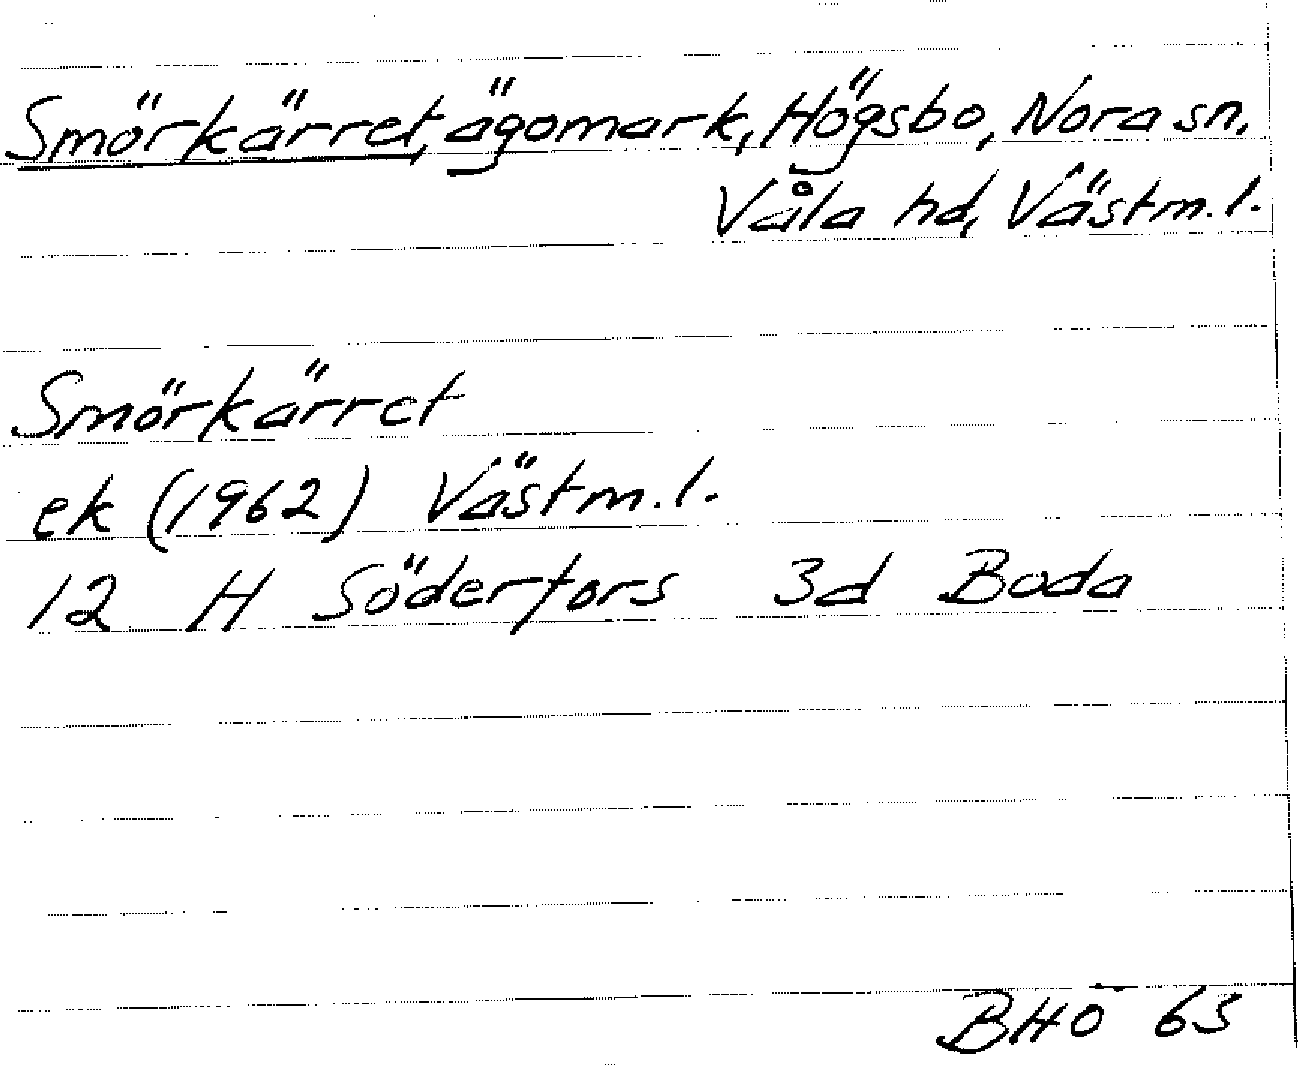 Smörkärret, ägomark, Högsbo, Nora sn,
Våla hd, Västm. l.
Smörkärret
ek (1962) Västm. l.
12 H Söderfors 3d Boda
BHÖ 63